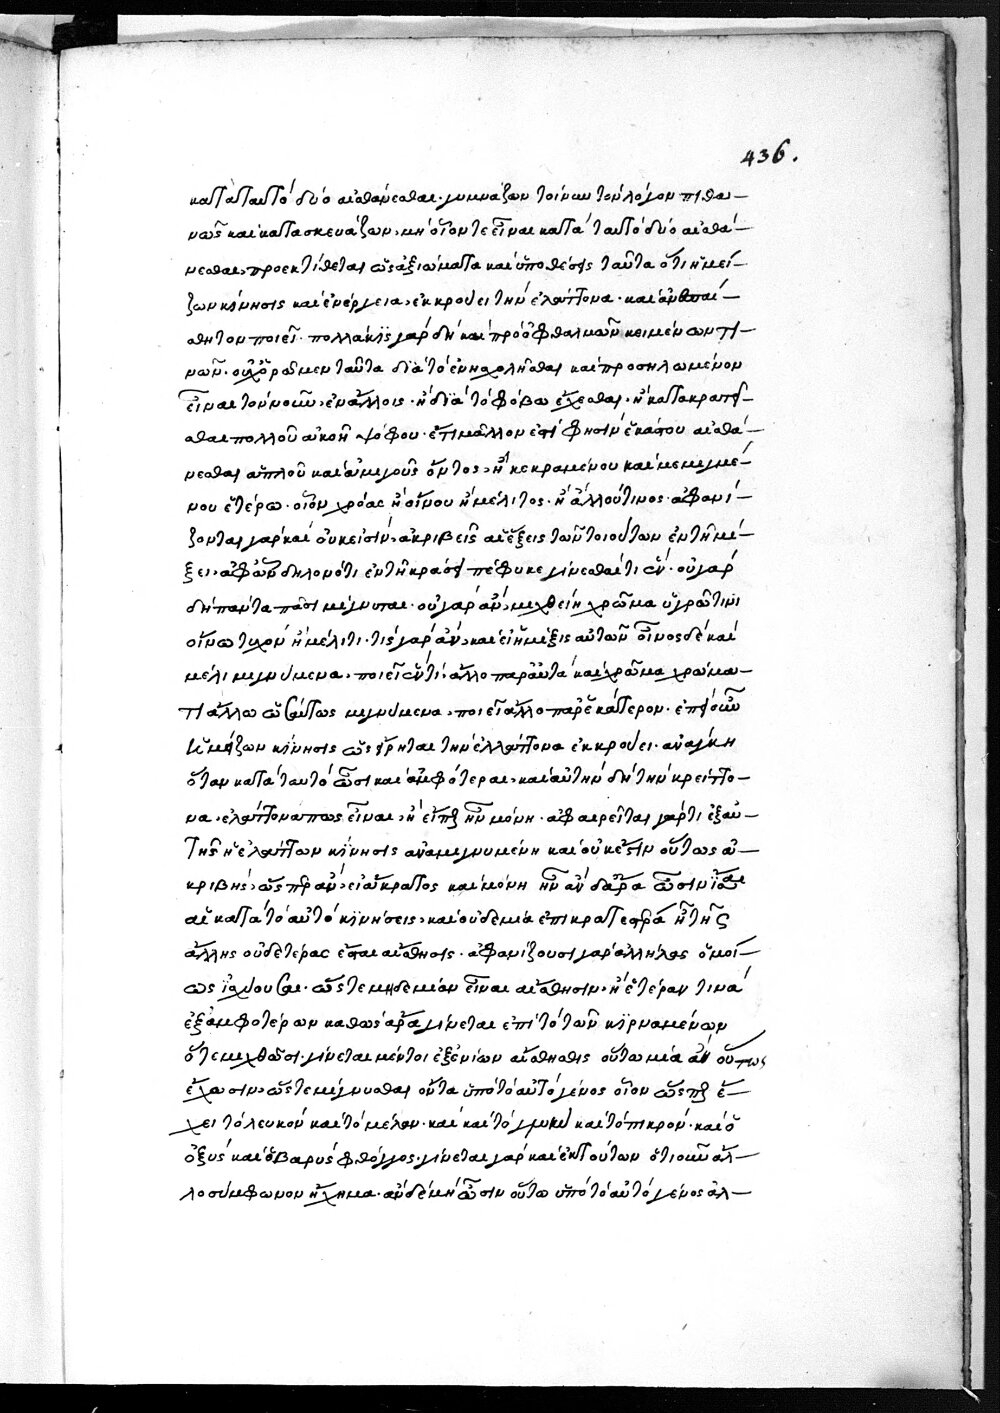 436.
κατὰ ταὐτὸ δύο αἰσθάνεσθαι· γυμνάζων τοίνυν τὸν λόγον πιθα-
νῶς καὶ κατασκευάζων, μὴ οἷόν τε εἶναι κατὰ ταὐτὸ δύο αἰσθά-
νεσθαι, προεκτίθεται ὡς ἀξιώματα καὶ ὑποθέσεις ταῦτα ὅτι ἡ μεί-
ζων κίνησις καὶ ἐνέργεια, ἐκκρούει τὴν ἐλάττονα· καὶ ἀνεπαί-
σθητον ποιεῖ· πολλάκις γὰρ δὴ καὶ πρὸ ὀφθαλμῶν κειμένων τι-
νῶν· οὐχ ὁρῶμεν ταῦτα διὰ τὸ ἐνησχολῆσθαι καὶ προσηλωμένον
εἶναι τὸν νοῦν, ἐν ἄλλοις· ἢ διὰ τὸ φόβω ἔχεσθαι· ἢ κατακρατεῖ-
σθαι πολλοῦ ἀκοῆ ψόφου· ἔτι μᾶλλον ἐστί φησιν ἑκάστου αἰσθά-
νεσθαι ἁπλοῦ καὶ ἀμιγοῦς ὄντος, ἢ κεκραμένου καὶ μεμιγμέ-
νου ἑτέρω· οἷον χρόας ἢ οἴνου ἢ μέλιτος· ἢ ἄλλου τινος· ἀφανί-
ζονται γὰρ καὶ οὐκ εἰσὶν, ἀκριβεῖς αἱ ἕξεις τῶν τοιούτων ἐν τῆ μί-
ξει, ἀφ' ὧν δηλονότι ἐν τῆ κράσει πέφυκε γίνεσθαί τι ἕν· οὐ γὰρ
δὴ πάντα πᾶσι μίγνυται· οὐ γὰρ ἂν, μιχθείη χρῶμα ὑγρῶ τινὶ
οἴνω τυχὸν ἢ μέλιτι· τίς γὰρ ἂν, καὶ εἴη μίξις αὐτῶν οἶνος δὲ καὶ
μέλι μιγνύμενα, ποιεῖ ἕν τι· ἄλλο παρ' αὐτὰ καὶ χρῶμα χρώμα-
τι ἄλλω ὡσαύτως μιγνύμενα, ποιεῖ ἄλλο παρ' ἑκάτερον· ἐπεὶ οὖν
ἡ μείζων κίνησις ὡς εἴρηται τὴν ἐλάττονα ἐκκρούει· ἀνάγκη
ὅταν κατὰ ταυτὸ ὦσι καὶ ἀμφότεραι, καὶ αὐτὴν δὴ τὴν κρείττο-
να, ἐλάττονα πως εἶναι, ἢ εἴπερ ἦν μόνη· ἀφαιρεῖται γάρ τι ἐξ αὐ-
τῆς ἡ ἐλάττων κίνησις ἀναμιγνυμένη καὶ οὐκ ἔστιν οὕτως ἀ-
κριβὴς, ὥσπερ ἂν, εἰ ἄκρατος καὶ μόνη ἦν ἂν δ' ἄρα ὦσιν ἴσαι
αἱ κατὰ τὸ αὐτὸ κινήσεις, καὶ οὐδεμία ἐπικρατεστέρα ᾖ τῆς
ἄλλης οὐδετέρας ἔσται αἴσθησις· ἀφανίζουσι γὰρ ἀλλήλας ὁμοί-
ως ἰσχύουσαι· ὥστε μηδεμίαν εἶναι αἴσθησιν, ἢ ἑτέραν τινὰ
ἐξ ἀμφοτέρων καθὼς ἄρα γίνεται ἐπὶ τὸ τῶν κιρναμένων
ὅτε μιχθῶσι· γίνεται μέντοι ἐξ ἐνίων αἴσθησις οὕτω μία ἂν οὕτως
ἔχωσιν, ὥστε μίγνυσθαι ὄντα ὑπὸ τὸ αὐτὸ γένος οἷον ὥσπερ ἔ-
χει τὸ λευκὸν καὶ τὸ μέλαν· καὶ καὶ τὸ γλυκὺ καὶ τὸ πικρὸν· καὶ ὁ
ὀξὺς καὶ ὁ βαρὺς φθόγγος· γίνεται γὰρ καὶ ἐκ τούτων ὁτιοῦν ἄλ-
λο σύμφωνον ἢ χῆμα· ἂν δὲ μὴ ὦσιν οὕτω ὑπὸ τὸ αὐτὸ γένος ἀλ-